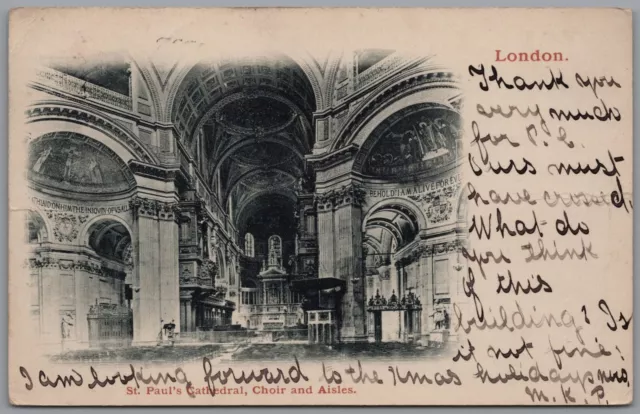 London.
Thank you
very much
for P.C.
Ours must
have crossed.
What do
you think
of this
building? Is
it not fine!
I am looking forward to the Xmas holidays now,
M. K. P.
BEHOLD I AM ALIVE FOR EV
St. Paul's Cathedral, Choir and Aisles.